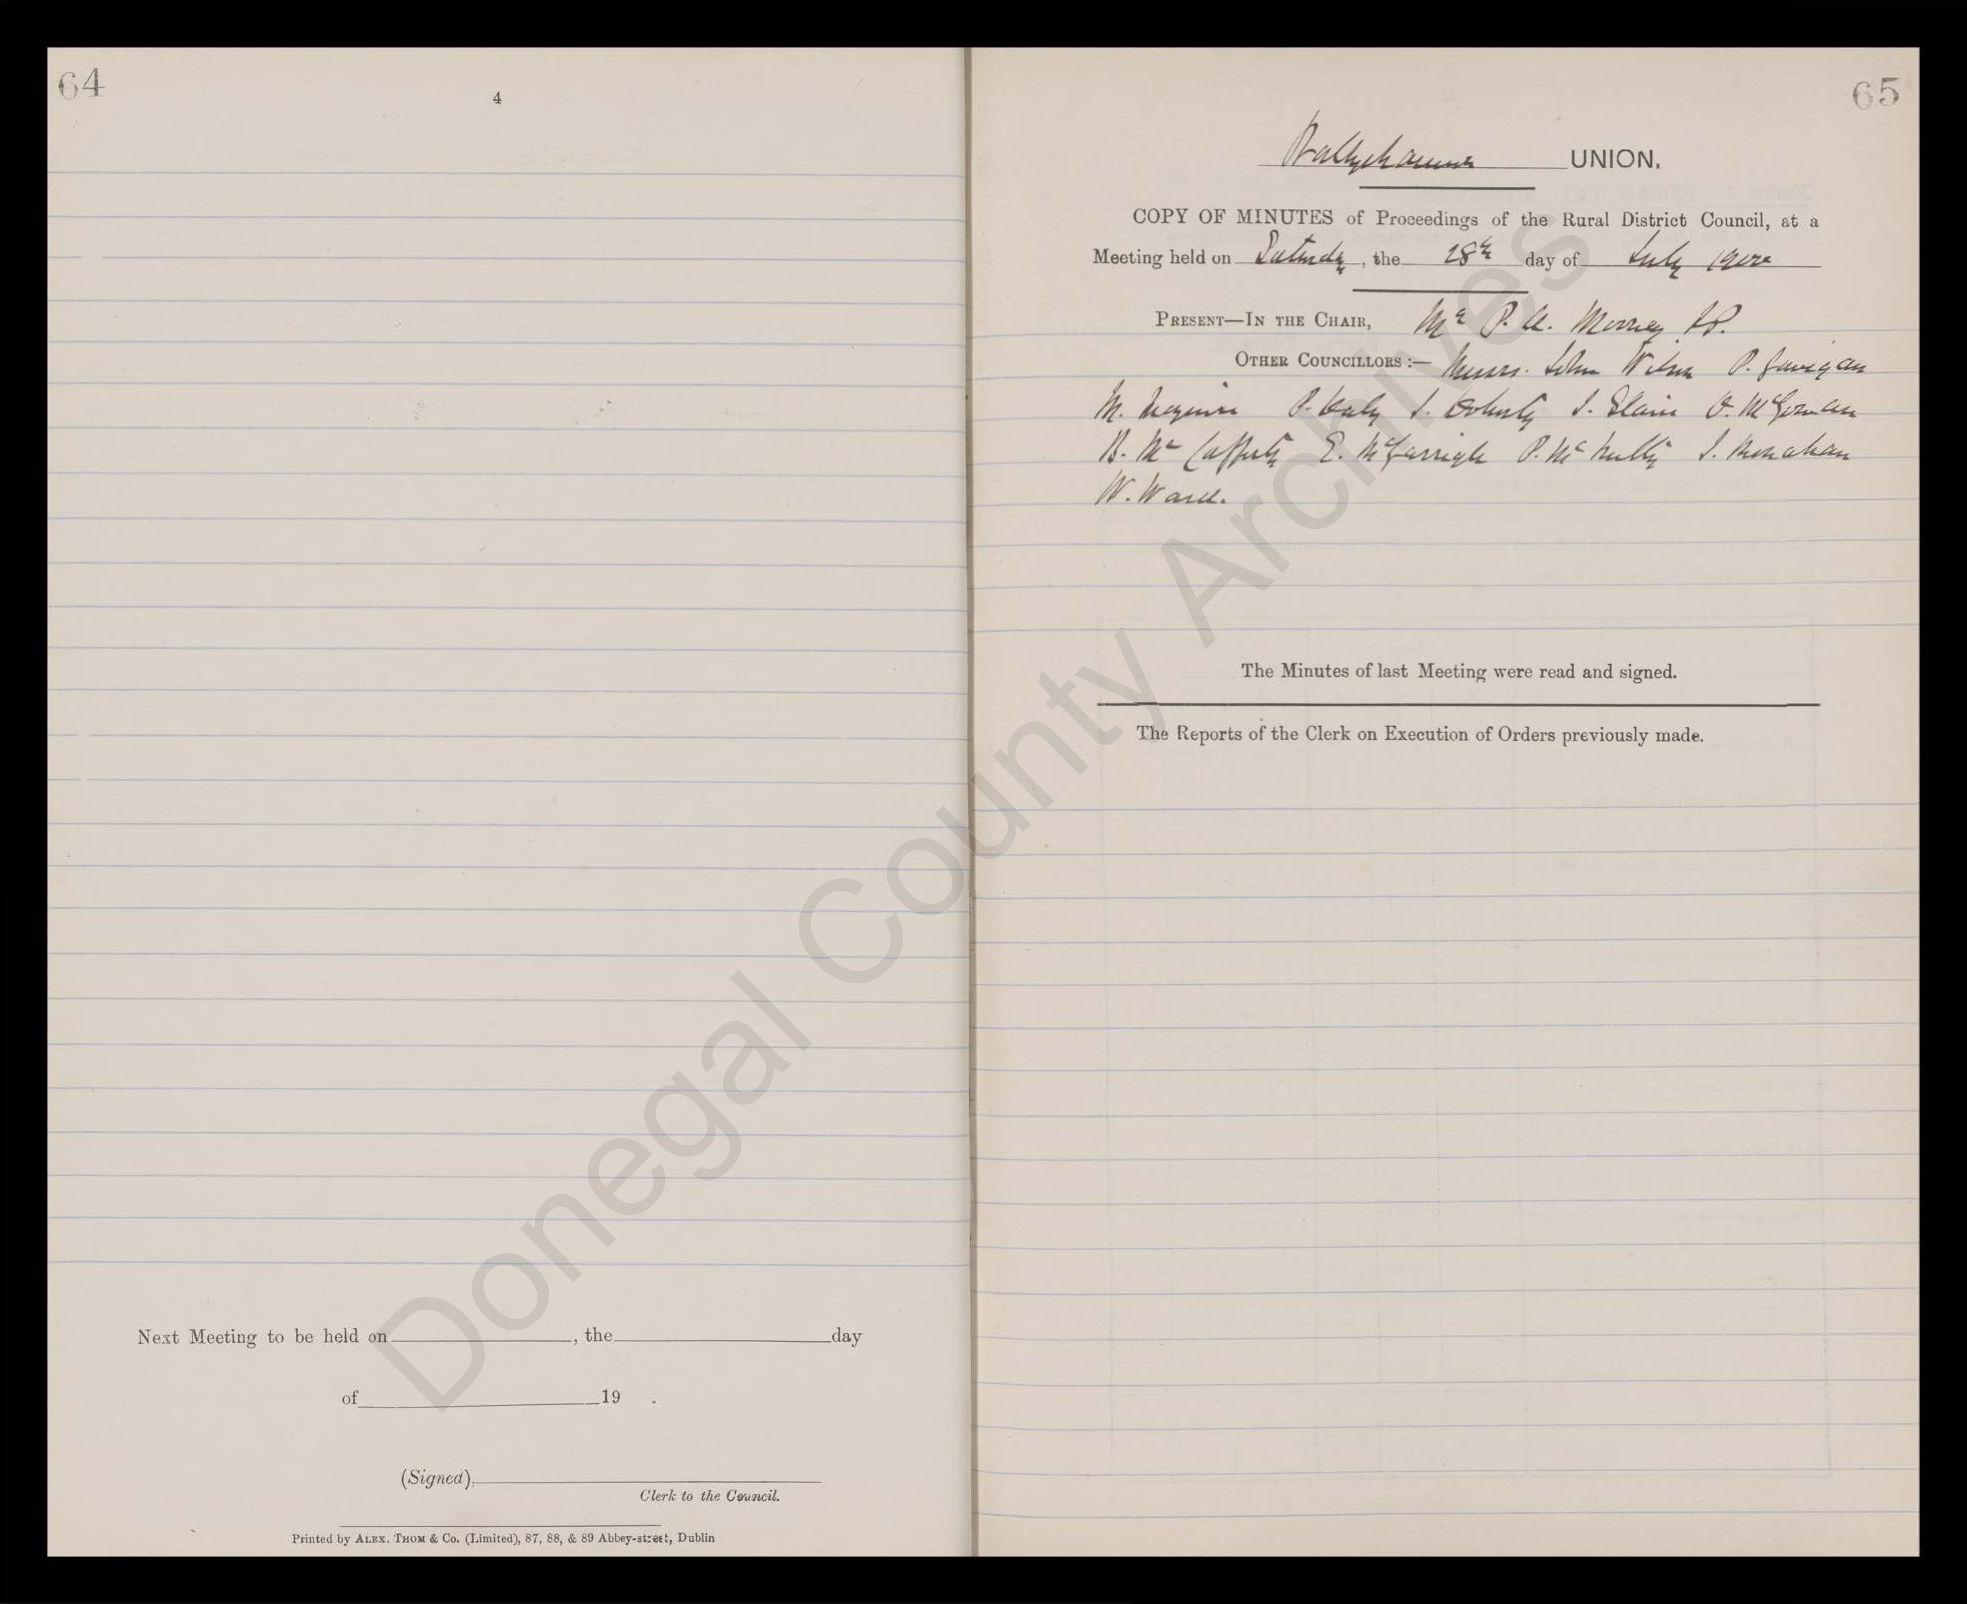 64
4
Next Meeting to be held on , the day
of 19 .
(Signed),
Clerk to the Council.
Printed by ALEX. THOM & Co. (Limited), 87, 88, & 89 Abbey-street, Dublin
65
Ballyshannon UNION.
COPY OF MINUTES of Proceedings of the Rural District Council, at a
Meeting held on Saturday, the 28th day of July 1900
PRESENT—IN THE CHAIR, Mr P. A. Mooney J.P.
OTHER COUNCILLORS :— Messrs. John Wilson P. Gavigan
M. Maguire P. Daly J. Doherty J. Slain O. McGowan
B. Mc Cafferty E. McGarrigle P. Mc Nulty J. Monahan
W. Ward.
The Minutes of last Meeting were read and signed.
The Reports of the Clerk on Execution of Orders previously made.
Donegal County Archives